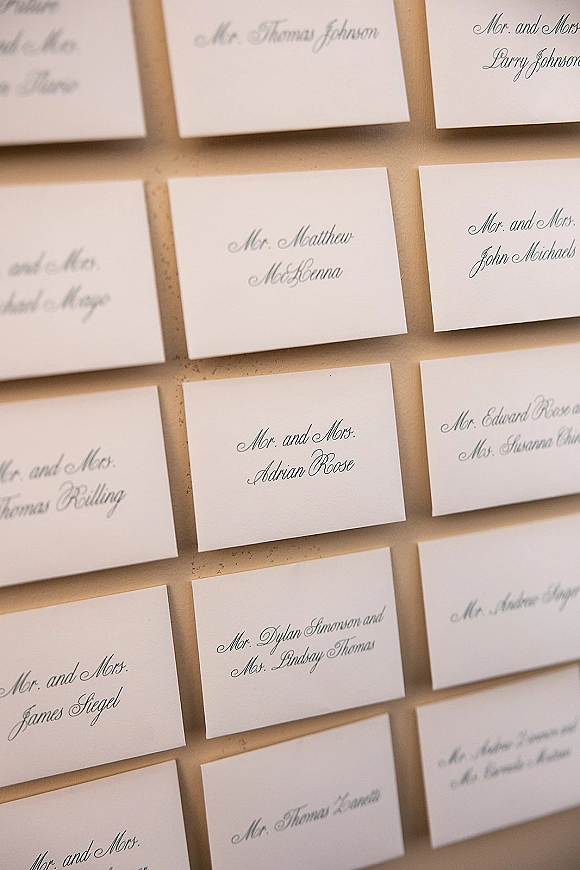 and Mrs.
Mr. Thomas Johnson
Mr. and Mrs.
Larry Johnson
and Mrs.
Mayo
Mr. Matthew
McKenna
Mr. and Mrs.
John Michaels
Mr. and Mrs.
Thomas Rilling
Mr. and Mrs.
Adrian Rose
Mr. Edward Rose
Ms. Susanna
Mr. and Mrs.
James Siegel
Mr. Dylan Simonson and
Ms. Lindsay Thomas
Mr. Andrew
Mr. and Mrs.
Mr. Thomas Zanetti
Mr. Andrew
Ms.